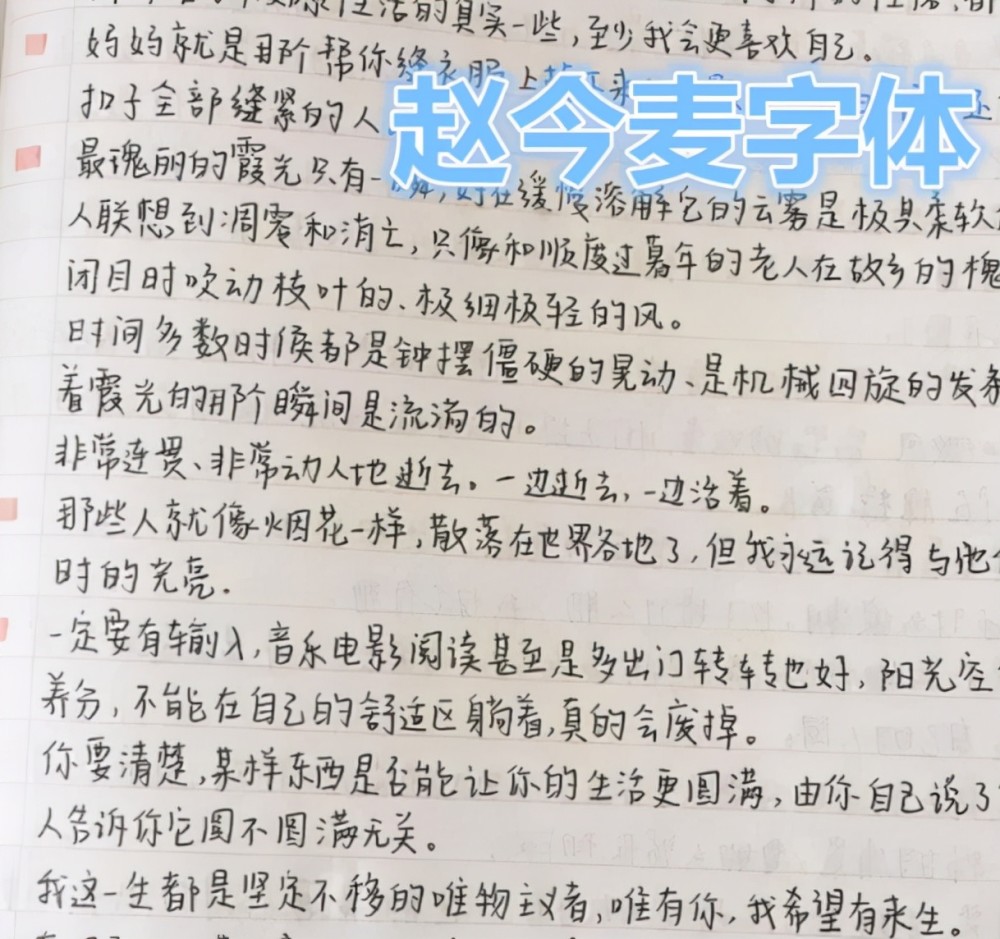 生活的真实一些,至少我会更喜欢自己。
妈妈就是那个帮你缝衣服上掉
赵今麦字体
扣子全部缝紧的人
最瑰丽的霞光只有一瞬,好在缓慢溶解它的云雾是极其柔软
人联想到凋零和消亡,只像和顺度过暮年的老人在故乡的槐
闭目时吹动枝叶的、极细极轻的风。
时间多数时候都是钟摆僵硬的晃动、是机械回旋的发条
着霞光的那个瞬间是流淌的。
非常连贯、非常动人地逝去。一边逝去,一边活着。
那些人就像烟花一样,散落在世界各地了,但我永远记得与他
时的光亮.
一定要有输入,音乐电影阅读甚至是多出门转转也好,阳光空
养分,不能在自己的舒适区躺着,真的会废掉。
你要清楚,某样东西是否能让你的生活更圆满,由你自己说了
人告诉你它圆不圆满无关。
我这一生都是坚定不移的唯物主义者,唯有你,我希望有来生。